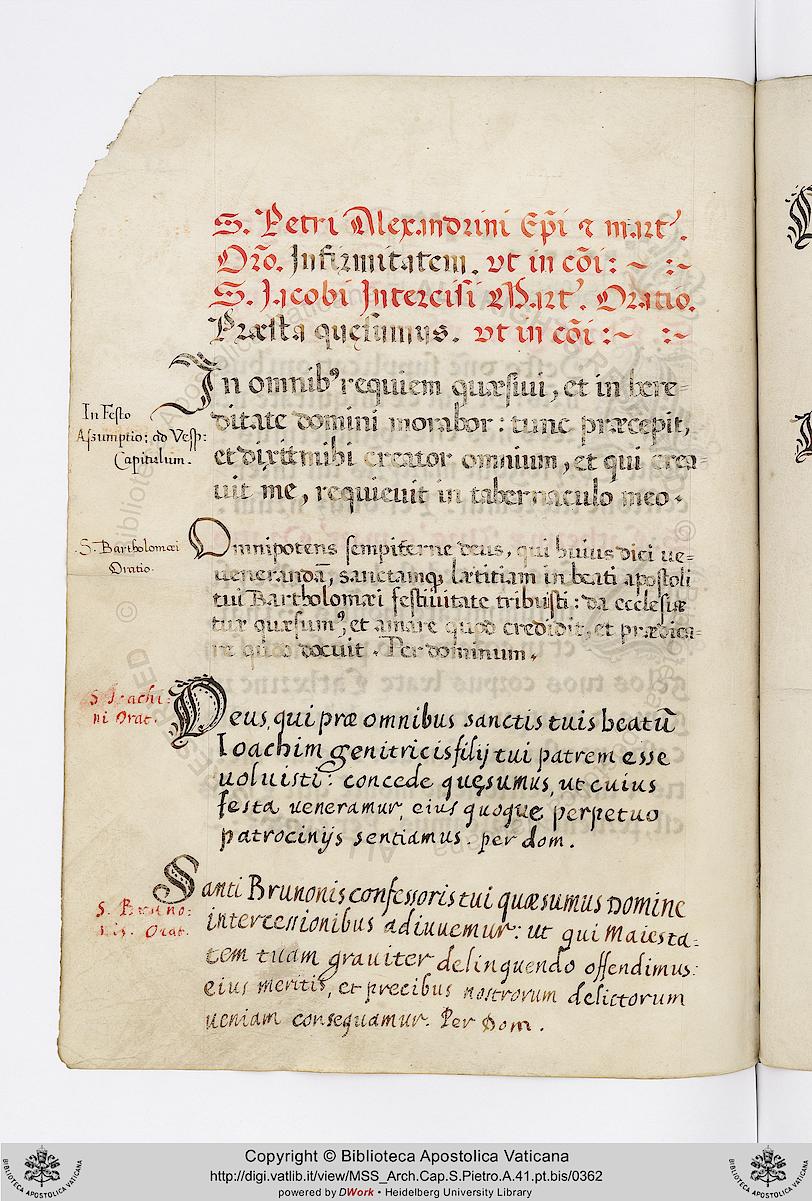 S. Petri Alexandrini Ep̃i ⁊ mart'.
Or̃o. Infirmitatem. vt in cõi: ~ :~
S. Jacobi Intercisi Mart'. Oratio.
Præsta quęsumus. vt in cõi :~ :~
In omnib' requiem quæsiui, et in here=
ditate domini morabor: tunc præcepit,
et dixit mihi creator omnium, et qui crea=
uit me, requieuit in tabernaculo meo.
In Festo
Assumptio: ad Vesp:
Capitulum.
S. Bartholomæi
Oratio.
Omnipotens sempiterne deus, qui huius diei ue=
uenerandā, sanctamq; lætitiam in beati apostoli
tui Bartholomæi festiuitate tribuisti: da ecclesiæ
tuæ quæsum', et amare quod credidit, et prædica=
re quod docuit. Per dominum.
S. Ioachi:
ni Orat.
Deus, qui præ omnibus sanctis tuis beatū
Ioachim genitricis filij tui patrem esse
uoluisti: concede quęsumus, ut cuius
festa ueneramur, eius quoque perpetuo
patrocinijs sentiamus. per dom.
S. Bruno:
nis. Orat.
Santi Brunonis confessoris tui quæsumus Domine
intercessionibus adiuuemur: ut qui Maiesta:
tem tuam grauiter delinquendo offendimus:
eius meritis, et precibus nostrorum delictorum
ueniam consequamur. Per Dom.
Copyright © Biblioteca Apostolica Vaticana
http://digi.vatlib.it/view/MSS_Arch.Cap.S.Pietro.A.41.pt.bis/0362
powered by DWork • Heidelberg University Library